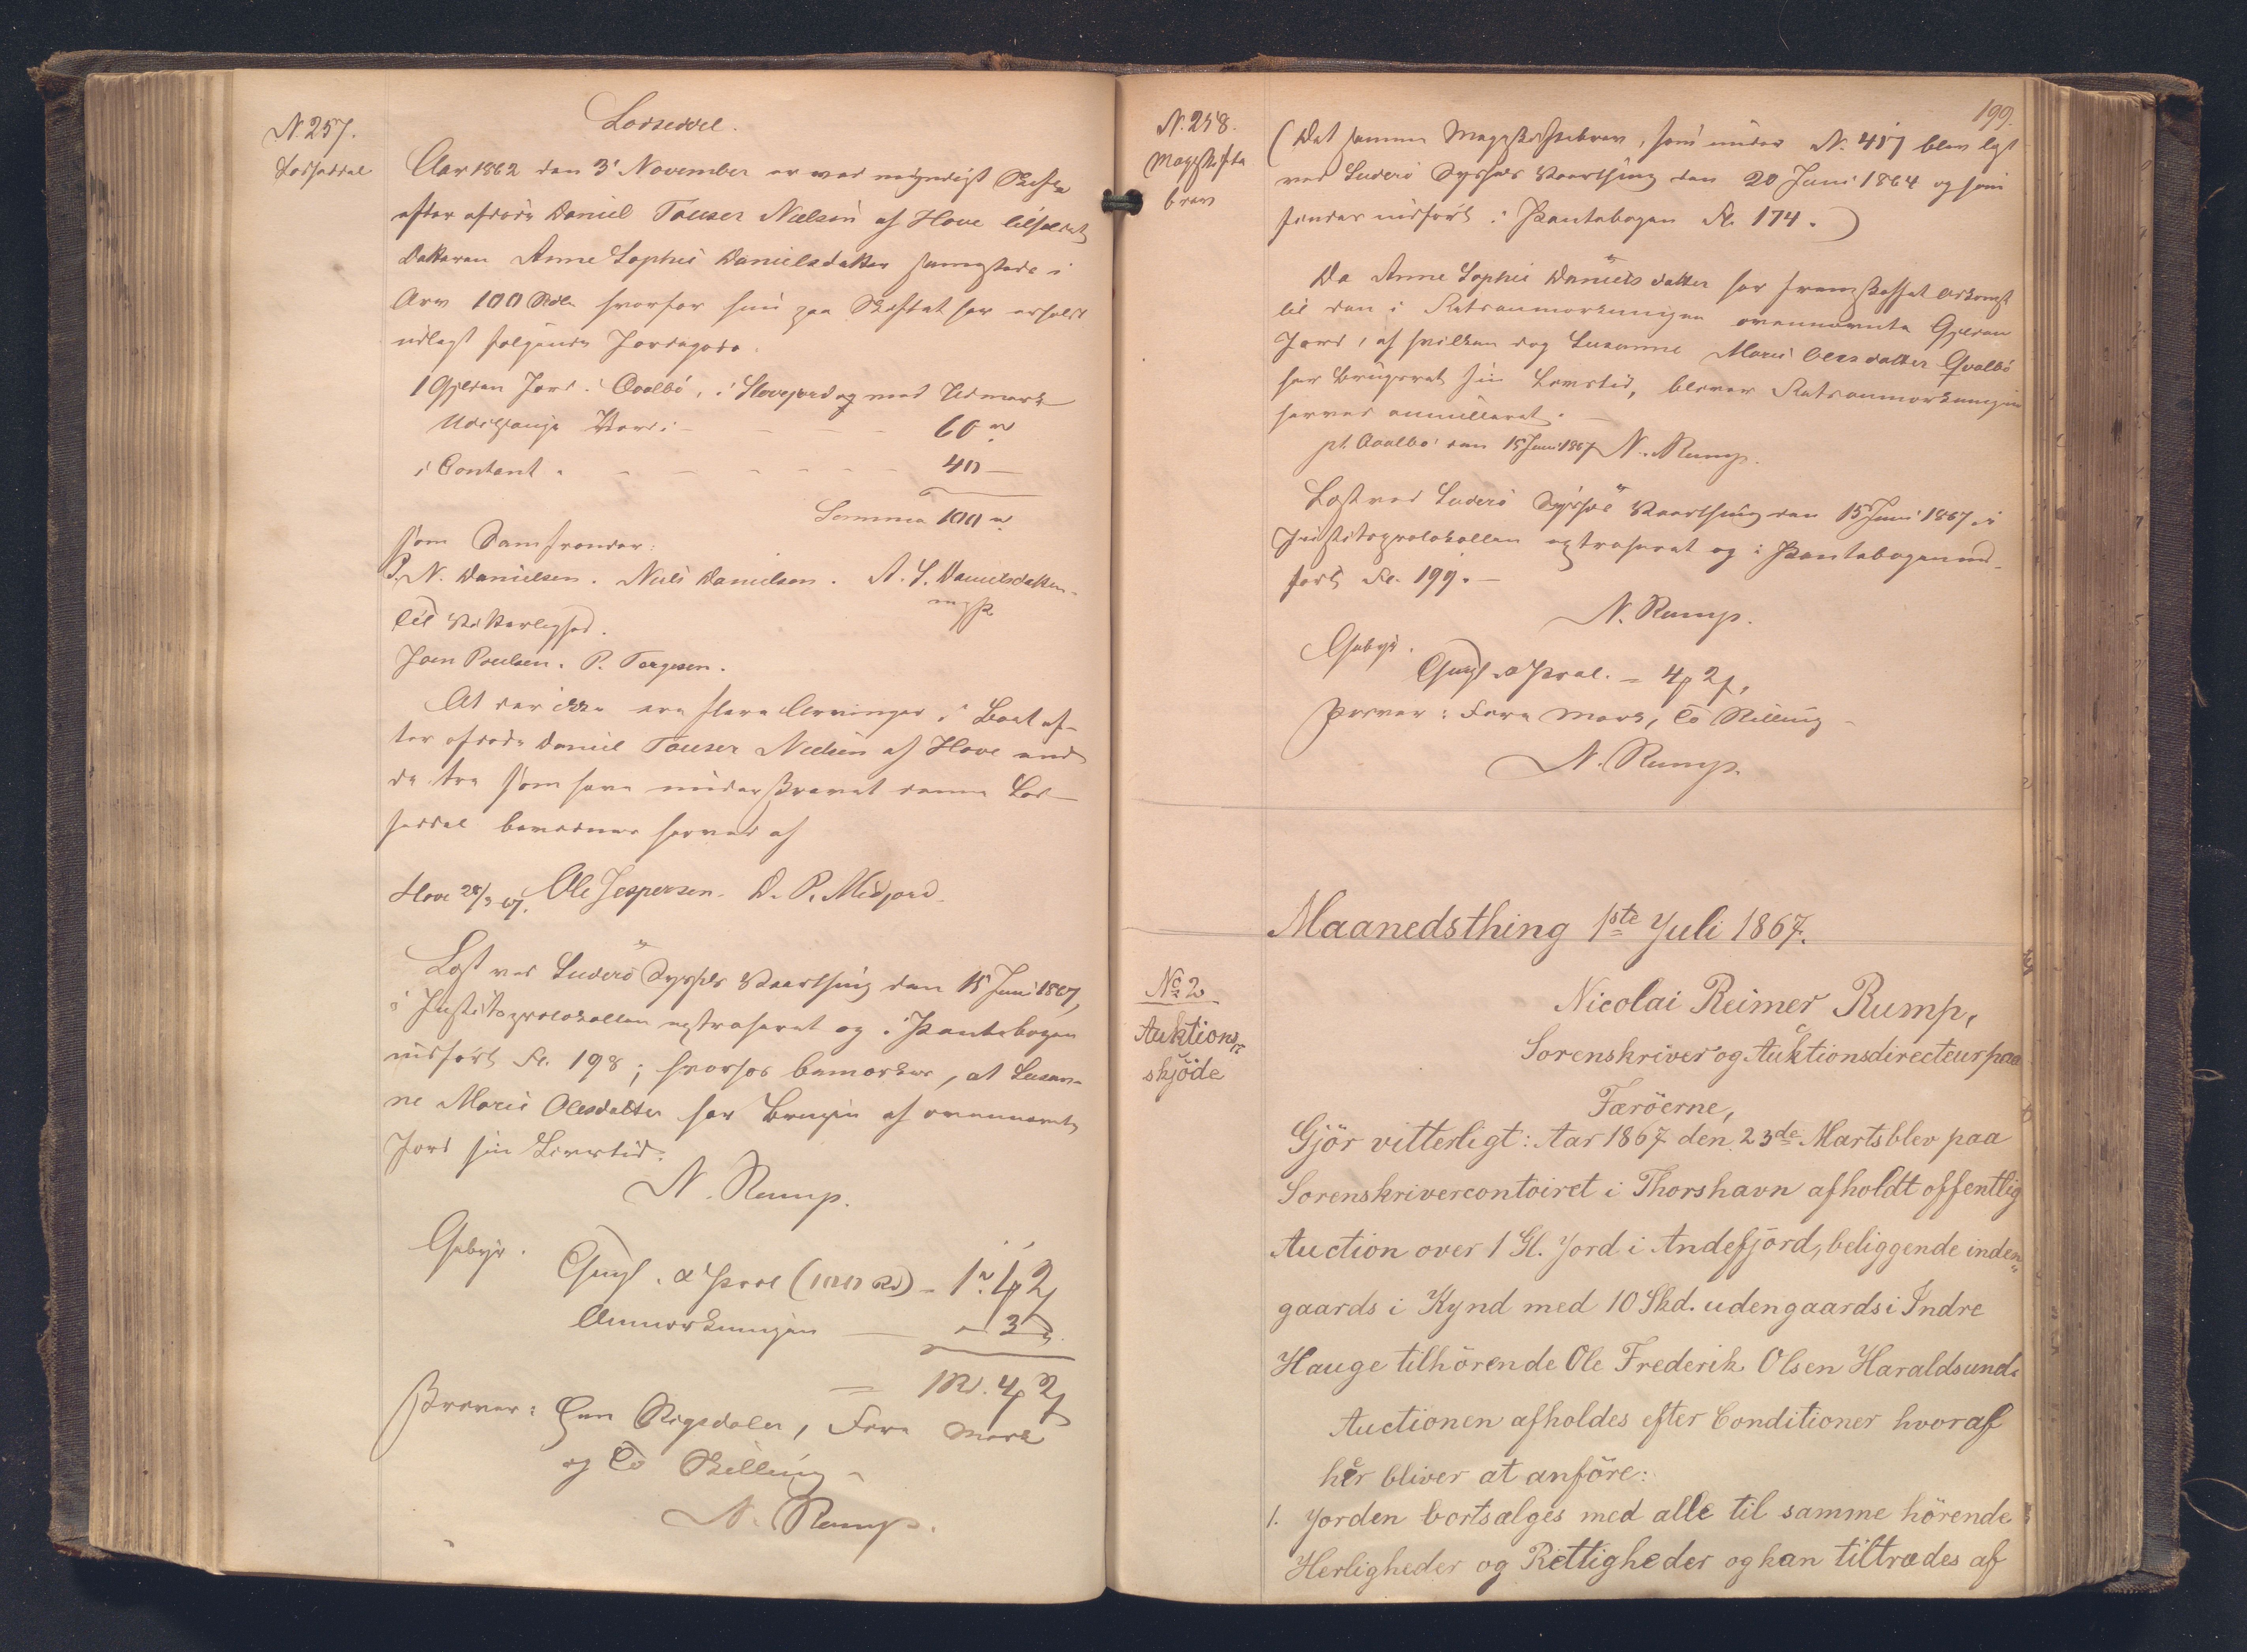 N. 257.
Lodseddel
Lodseddel.
Aar 1862 den 3' November er ved mynrigt Skifte
efter afdøde Daniel Touser Nielsen af Hove tilfaldet
Datteren Anne Sophie Danielsdatter sammesteds i
Arv 100 Rdlr hvorfor hun paa Skiftet har erholdt
udlagt følgende Jordegods.
1 Gylden Jord i Qvalbö, i Hovejord og med Udmark
60
i Contant. 40 —
Summa 100
Som Samfrender:
P. N. Danielsen. Niels Danielsen. A. S. Danielsdatter
Til Vitterlighed.
Joen Poulsen. P. Torgesen.
At der ikke ere flere Arvinger i Boet ef-
ter afdøde Daniel Touser Nielsen af Hove end
de tre som have underskrevet denne Lod-
seddel bevidnes herved af
Hove 28/3 67. Ole Jespersen. D. P. Midjord.
Læst ved Suderö Syssels Vaarthing den 15 Juni 1867,
i Justitsprotokollen extraheret og i Pantebogen
indført Fl. 198; hvorhos bemærkes, at Susan-
ne Marie Olesdatter har Brugen af ovennævnte
Jord sin Livstid.
N. Rump.
Gebyr.
Thingl. a Prot (100 Rd) – 1 1 2
Anmærkningen — 3
= 1 Rd. 4 2
Skriver: Een Rigsdaler, Fire Mark
og To Skilling
N. Rump.
199.
N. 258.
Mageskifte
brev
(Det samme Mageskiftebrev, som under N. 457 blev læst
ved Suderö Syssels Vaarthing den 20 Juni 1864 og som
findes indført i Pantebogen Fl. 174.)
Da Anne Sophie Danielsdatter har fremskaffet Adkomst
til den i Retsanmærkningen ovennævnte Gylden
Jord, af hvilken dog Susanne Marie Olesdatter Qvalbö
har Brugsret sin Levetid, bliver Retsanmærkningen
herved annulleret.
pt. Qvalbö den 15 Juni 1867 N. Rump.
Læst ved Suderö Syssels Vaarthing den 15 Juni 1867, i
Justitsprotokollen extraheret og i Pantebogen ind-
ført Fl. 199. –
N. Rump.
Gebyr.
Thingl. a Prot. = 4 2
Skriver: Fire Mark, To Skilling –
N. Rump.
Maanedsthing 1ste Juli 1867.
No 2
Auktions,,
skjöde
Nicolai Reimer Rump,
Sorenskriver og Auktionsdirecteur paa
Færöerne,
Gjör vitterligt: Aar 1867 den 23de Marts blev paa
Sorenskrivercontoiret i Thorshavn afholdt offentlig
Auction over 1 Gl. Jord i Andefjord, beliggende inden,,
gaards i Kynd med 10 Skd. udengaards i Indre
Hauge tilhörende Ole Frederik Olsen Haraldsund.
Auctionen afholdes efter Conditioner hvoraf
her bliver at anföre:
1. Jorden bortsælges med alle til samme hörende
Herligheder og Rettigheder og kan tiltrædes af